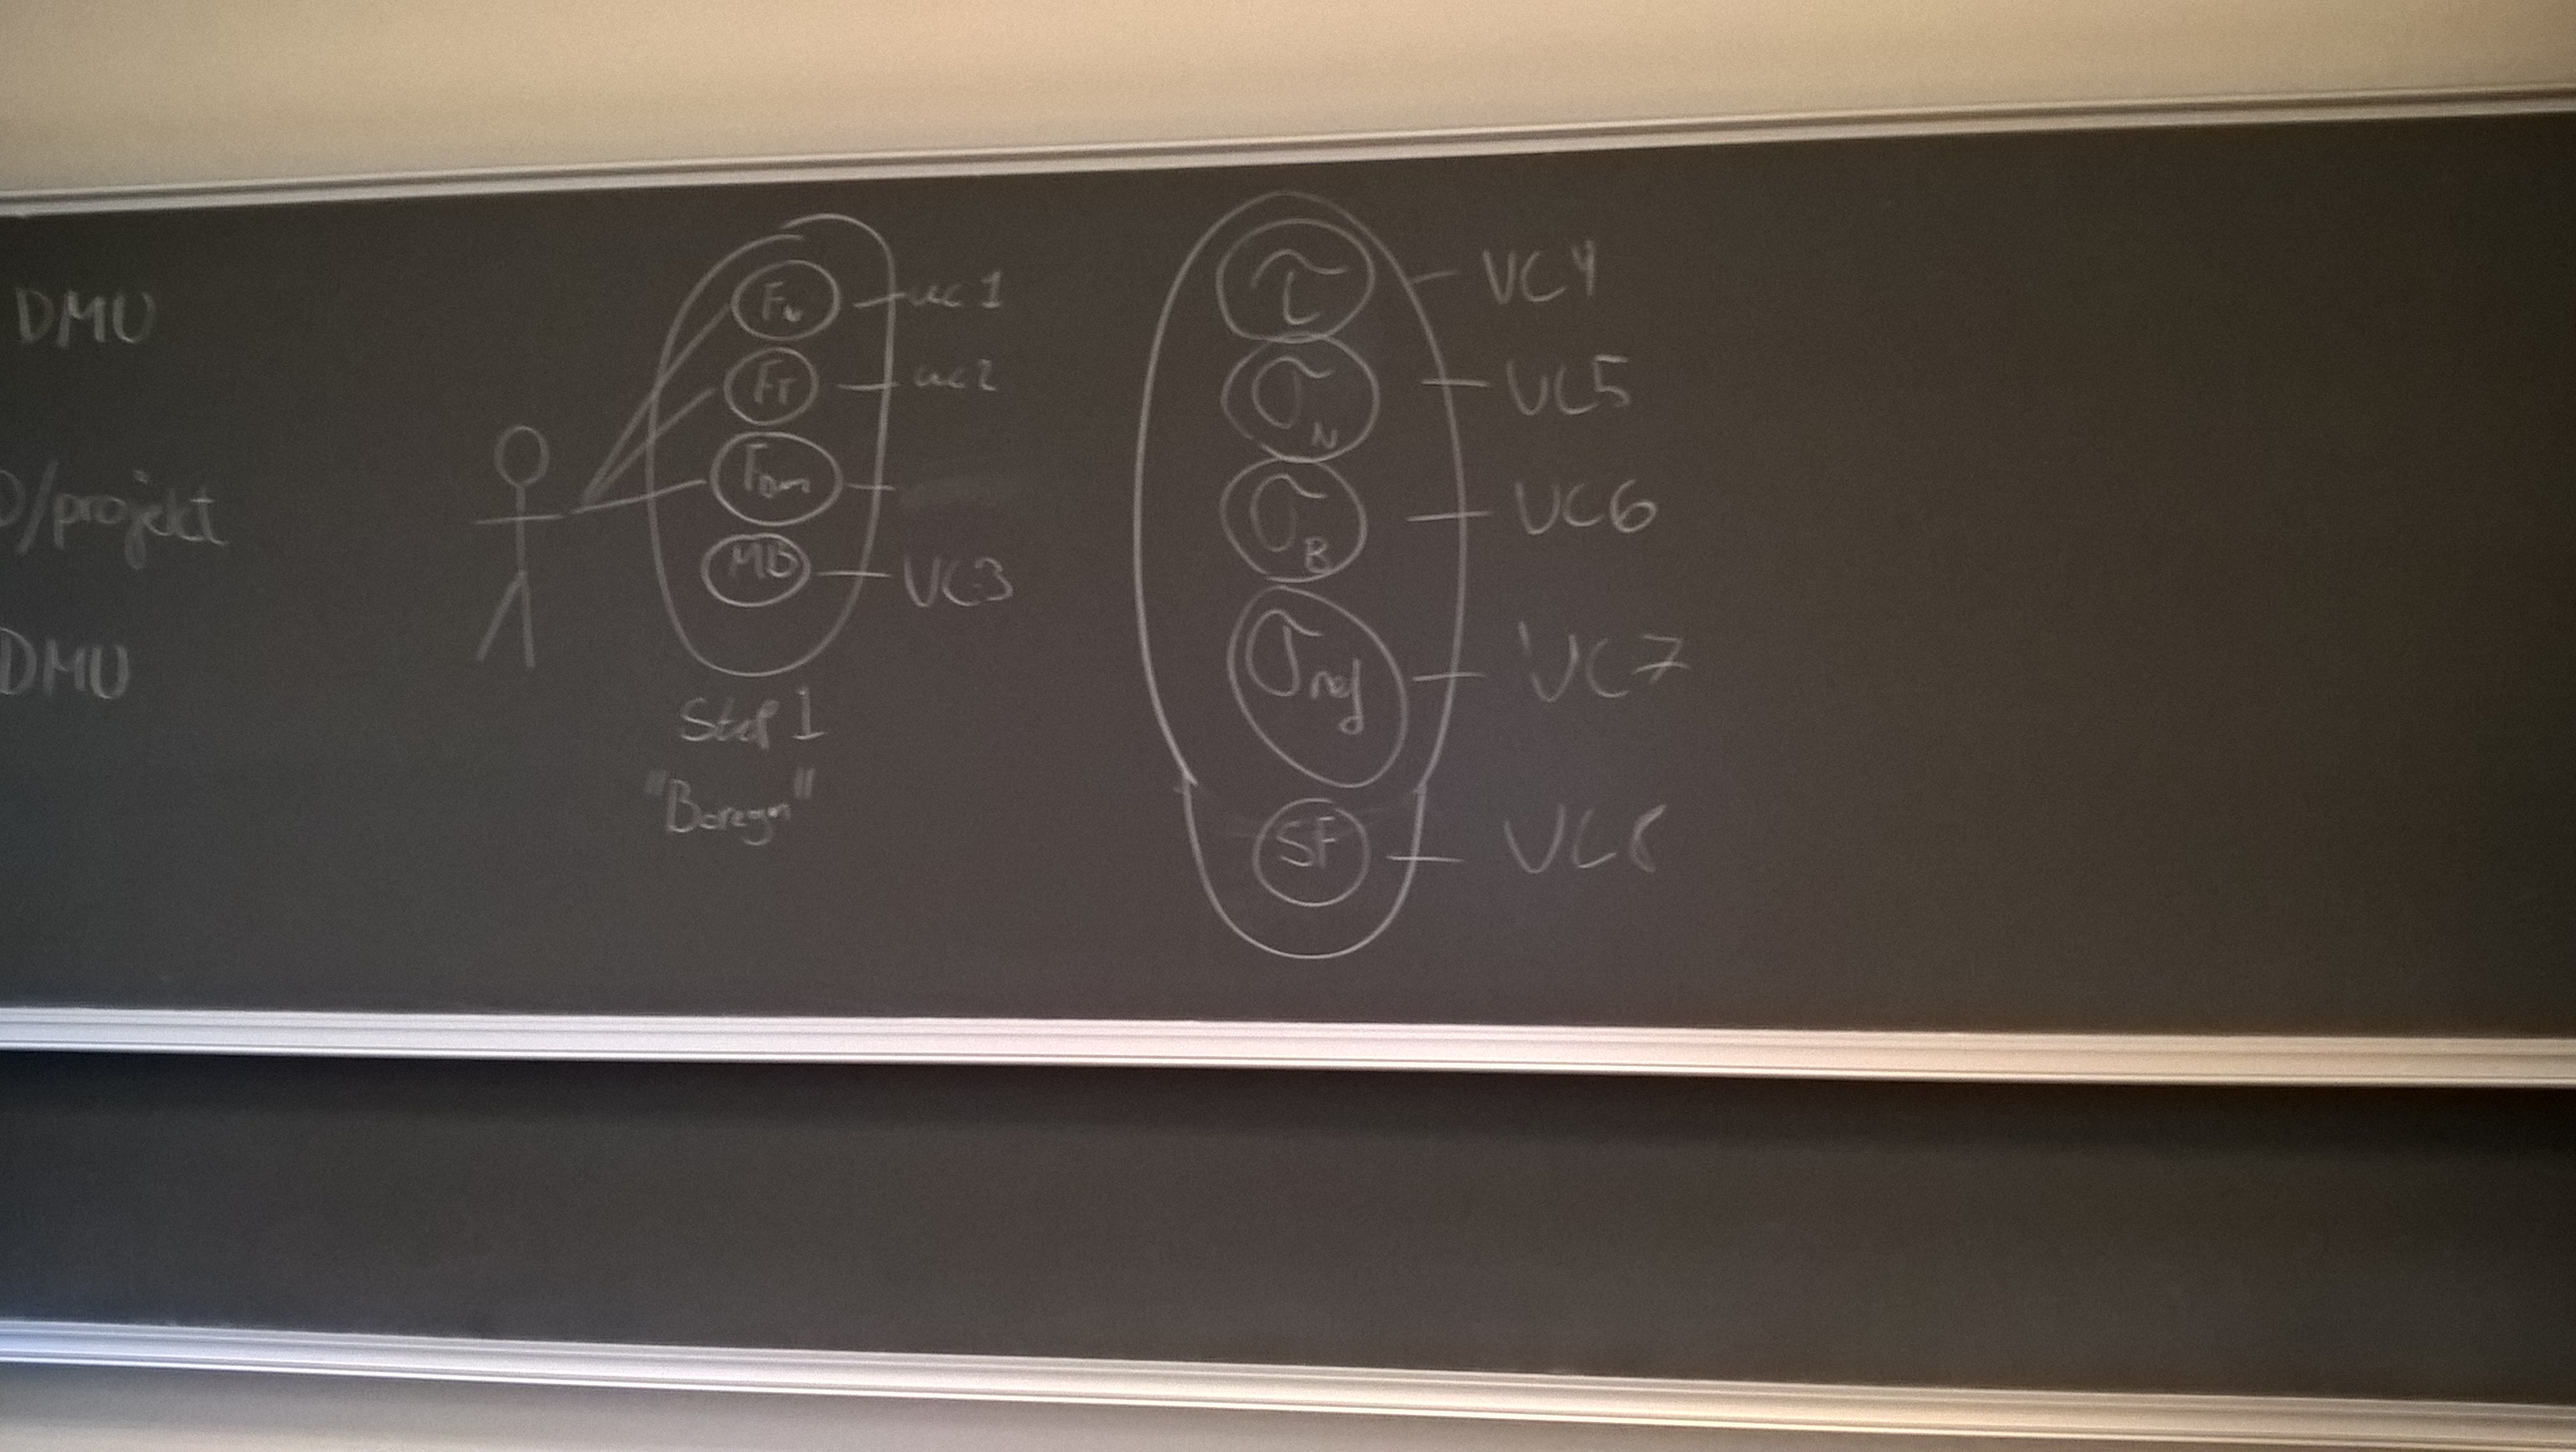 DMU
/projekt
DMU
FN
uc1
FT
uc2
FDim
MB
UC3
Step 1
"Beregn"
τ
UC4
σN
UC5
σB
UC6
σref
UC7
SF
UC8